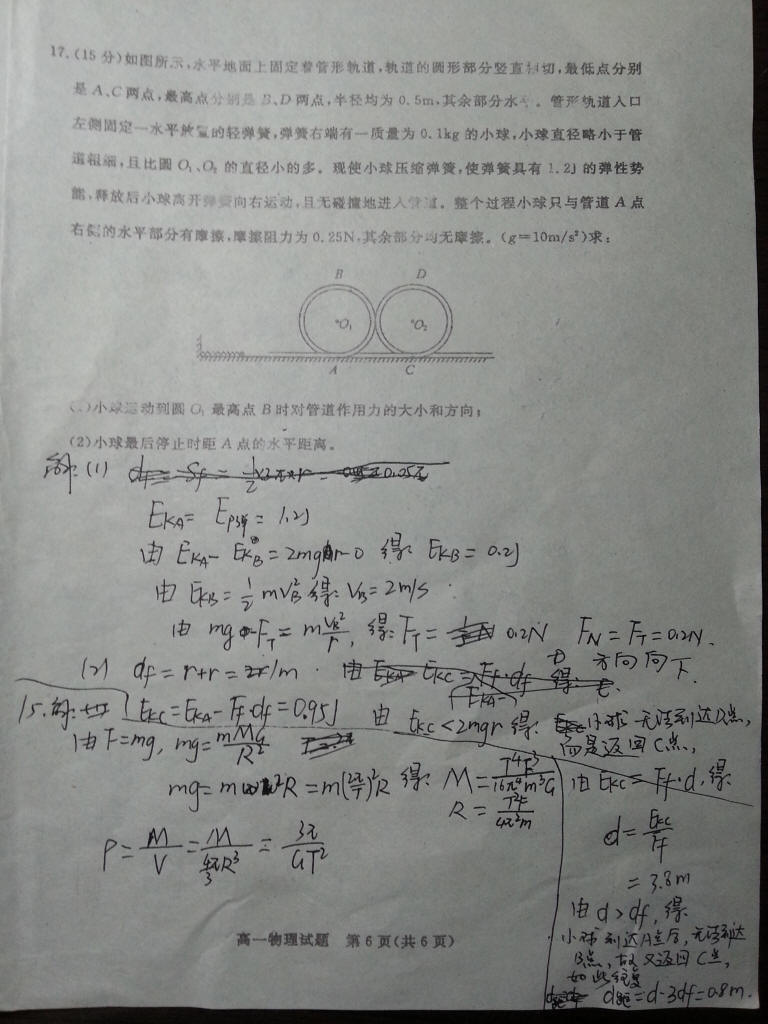 17.(15分)如图所示,水平地面上固定着管形轨道,轨道的圆形部分竖直相切,最低点分别
是A、C两点,最高点分别是B、D两点,半径均为0.5m,其余部分水平。管形轨道入口
左侧固定一水平放置的轻弹簧,弹簧右端有一质量为0.1kg的小球,小球直径略小于管
道粗细,且比圆O₁、O₂的直径小的多。现使小球压缩弹簧,使弹簧具有1.2J的弹性势
能,释放后小球离开弹簧向右运动,且无碰撞地进入管道。整个过程小球只与管道A点
右侧的水平部分有摩擦,摩擦阻力为0.25N,其余部分均无摩擦。(g=10m/s²)求:
B D
O₁ O₂
A C
(1)小球运动到圆O₁最高点B时对管道作用力的大小和方向;
(2)小球最后停止时距A点的水平距离。
解:(1)
E_KA = E_P弹 = 1.2J
由 E_KA - E_KB = 2mgr-0 得: E_KB = 0.2J
由 E_KB = 1/2 mV_B² 得: V_B = 2m/s
由 mg - F_T = m V_B²/r, 得: F_T = 0.2N F_N = F_T = 0.2N.
方向向下.
(2) df = r+r = 1m.
E_KC = E_KA - Ff·df = 0.95J 由 E_KC < 2mgr 得: 小球无法到达D点,
而是返回C点,
由 E_KC = Ff·d, 得:
d = E_KC/Ff
= 3.8m
由 d > df, 得:
小球到达A点后,无法到达
B点,故又返回C点,
如此往复
d距 = d-3df = 0.8m.
15.解:
由 F=mg, mg = mMG/R²
mg = mω²R = m(2π/T)²R 得: M = T⁴F³/16π⁴m³G
R = T²F/4π²m
ρ = M/V = M/(4π/3 R³) = 3π/GT²
高一物理试题 第6页(共6页)